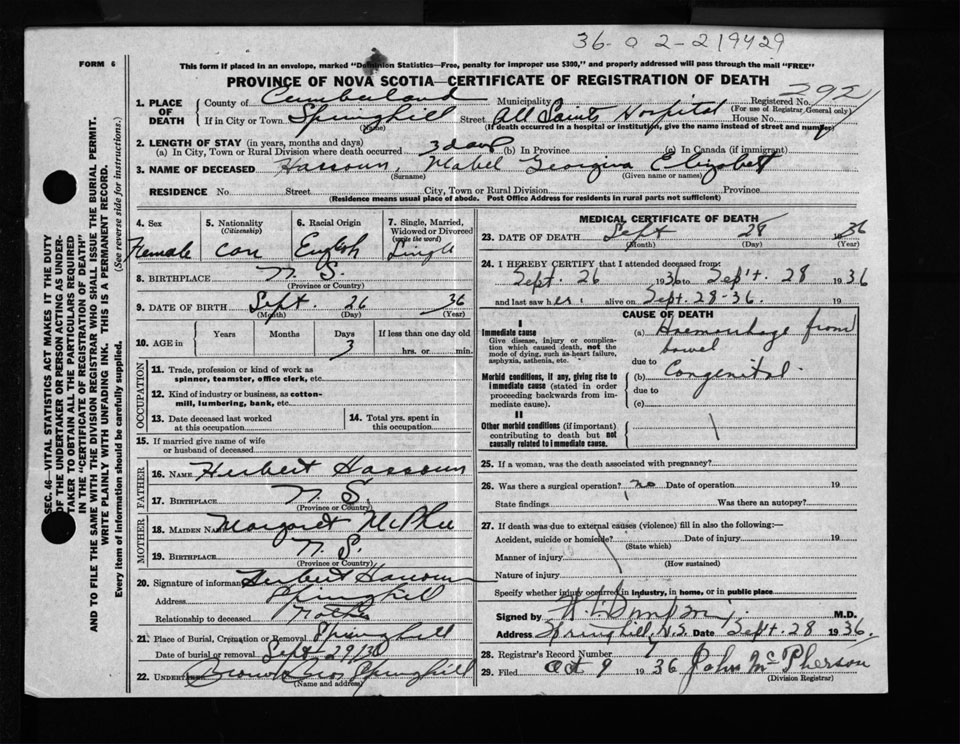 36-a 2-219429
FORM 6
This form if placed in an envelope, marked "Dominion Statistics—Free, penalty for improper use $300," and properly addressed will pass through the mail "FREE"
PROVINCE OF NOVA SCOTIA—CERTIFICATE OF REGISTRATION OF DEATH
1. PLACE OF DEATH
County of Cumberland Municipality Registered No. 292
(For use of Registrar General only)
If in City or Town Springhill Street All Saints Hospital House No.
(Name) (If death occurred in a hospital or institution, give the name instead of street and number)
2. LENGTH OF STAY (in years, months and days)
(a) In City, Town or Rural Division where death occurred 3 days (b) In Province (c) In Canada (if immigrant)
3. NAME OF DECEASED Hassoun, Mabel Georgina Elizabeth
(Surname) (Given name or names)
RESIDENCE No Street City, Town or Rural Division Province
(Residence means usual place of abode. Post Office Address for residents in rural parts not sufficient)
4. Sex Female
5. Nationality (Citizenship) Can
6. Racial Origin English
7. Single, Married, Widowed or Divorced (write the word) Single
8. BIRTHPLACE N. S.
(Province or Country)
9. DATE OF BIRTH Sept. 26 36
(Month) (Day) (Year)
10. AGE in Years Months Days 3 If less than one day old hrs. or min.
OCCUPATION
11. Trade, profession or kind of work as spinner, teamster, office clerk, etc.
12. Kind of industry or business, as cotton-mill, lumbering, bank, etc.
13. Date deceased last worked at this occupation
14. Total yrs. spent in this occupation
15. If married give name of wife or husband of deceased
FATHER
16. NAME Herbert Hassoun
17. BIRTHPLACE N. S.
(Province or Country)
MOTHER
18. MAIDEN NAME Margaret McPhee
19. BIRTHPLACE N. S.
(Province or Country)
20. Signature of informant Herbert Hassoun
Address Springhill
Relationship to deceased
21. Place of Burial, Cremation or Removal Springhill
Date of burial or removal Sept 29/36
22. UNDERTAKER Brown Bros Springhill
(Name and address)
MEDICAL CERTIFICATE OF DEATH
23. DATE OF DEATH Sept 28 1936
(Month) (Day) (Year)
24. I HEREBY CERTIFY that I attended deceased from:
Sept. 26 1936 to Sep't. 28 1936
and last saw her alive on Sept. 28-36. 19
CAUSE OF DEATH
I
Immediate cause
Give disease, injury or complication which caused death, not the mode of dying, such as heart failure, asphyxia, asthenia, etc.
(a) Haemorrhage from bowel
due to
Morbid conditions, if any, giving rise to immediate cause (stated in order proceeding backwards from immediate cause).
(b) Congenital.
due to
(c)
II
Other morbid conditions (if important) contributing to death but not causally related to immediate cause.
25. If a woman, was the death associated with pregnancy?
26. Was there a surgical operation? no Date of operation 19
State findings Was there an autopsy?
27. If death was due to external causes (violence) fill in also the following:—
Accident, suicide or homicide? Date of injury 19
(State which)
Manner of injury
(How sustained)
Nature of injury
Specify whether injury occurred in industry, in home, or in public place
Signed by M.D.
Address Springhill, N.S. Date Sept. 28 1936.
28. Registrar's Record Number
29. Filed Oct 9 1936 John McPherson
(Division Registrar)
SEC. 46—VITAL STATISTICS ACT MAKES IT THE DUTY
OF THE UNDERTAKER OR PERSON ACTING AS UNDER-
TAKER TO OBTAIN ALL THE PARTICULARS REQUIRED
IN THE "CERTIFICATE OF REGISTRATION OF DEATH"
AND TO FILE THE SAME WITH THE DIVISION REGISTRAR WHO SHALL ISSUE THE BURIAL PERMIT.
WRITE PLAINLY WITH UNFADING INK. THIS IS A PERMANENT RECORD.
Every item of information should be carefully supplied. (See reverse side for instructions.)